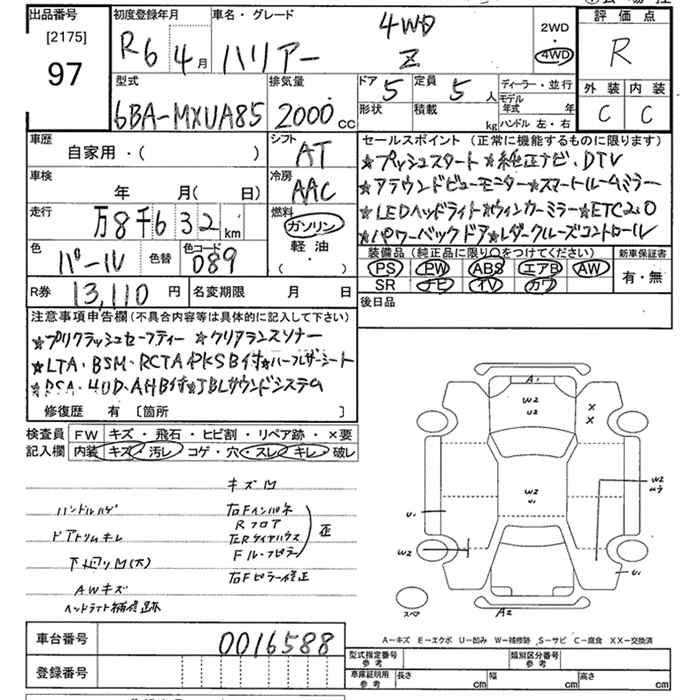 出品番号
[2175]
97
初度登録年月
R6 4月
車名・グレード
ハリアー 4WD Z
2WD
4WD
評価点
R
外装 内装
C C
型式
6BA-MXUA85
排気量
2000cc
ドア 5
定員 5人
形状 積載 kg
ディーラー・並行
モデル年式 年
ハンドル 左・右
車歴
自家用・( )
シフト
AT
車検
年 月(日)
冷房
AAC
走行
万8千632km
燃料
ガソリン
軽油
( ・ )
色
パール
色替
色コード
089
R券
13,110円
名変期限 月 日
セールスポイント(正常に機能するものに限ります)
★プッシュスタート★純正ナビ、DTV
★アラウンドビューモニター★スマートルームミラー
★LEDヘッドライト★ウィンカーミラー★ETC2.0
★パワーバックドア★レダークルーズコントロール
装備品(純正品に限り○をつけてください)
PS PW ABS エアB AW
SR ナビ TV カワ
新車保証書
有・無
後日品
注意事項申告欄(不具合内容等は具体的に記入して下さい)
★プリクラッシュセーフティー ★クリアランスソナー
★LTA・BSM・RCTA PKSB付★ハーフレザーシート
★RSA・HUD・AHB付★JBLサウンドシステム
修復歴 有 [箇所 ]
検査員記入欄
FW キズ・飛石・ヒビ割・リペア跡・×要
内装 キズ・汚レ・コゲ・穴・スレ・キレ・破レ
キズ凹
ハンドルハゲ
ドアトリムキレ
下廻り凹(大)
AWキズ
ヘッドライト補修跡
右Fインパネ
Rフロア
右Rタイヤハウス
F ル-フピラー
歪
右Fピラー修正
A1
W2
U2
X
X
W2
U1
W2
U1
W2
U1
A2
スペア
A－キズ E－エクボ U－凹み W－補修跡 S－サビ C－腐食 XX－交換済
車台番号
0016588
登録番号
型式指定番号
参考
類別区分番号
参考
車庫証明用
参考
長さ cm 幅 cm 高さ cm